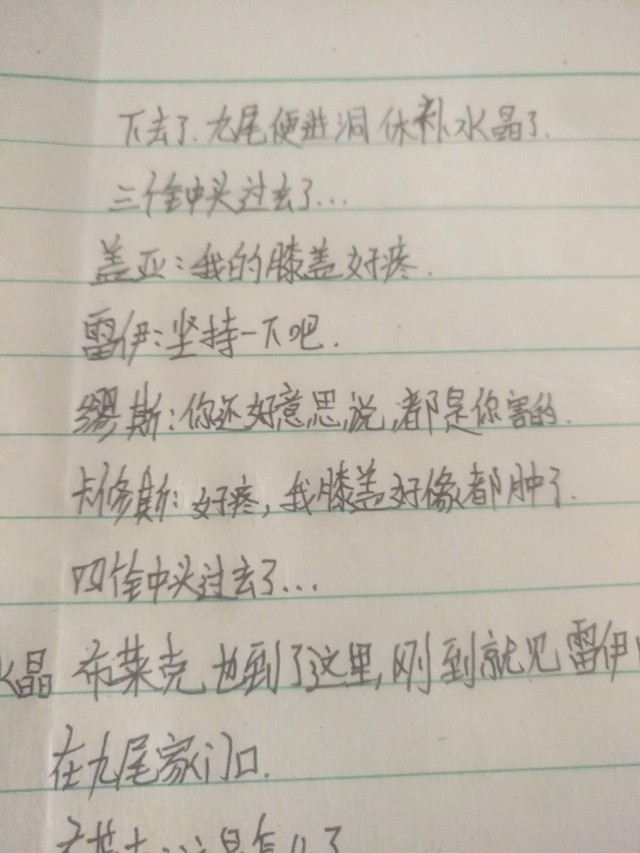 下去了.九尾便进洞休补水晶了.
三个钟头过去了...
盖亚:我的膝盖好疼.
雷伊:坚持一下吧.
缪斯:你还好意思说,都是你害的.
卡修斯:好疼,我膝盖好像都肿了.
四个钟头过去了...
水晶 布莱克也到了这里,刚到就见雷伊
在九尾家门口.
布莱克:这是怎么了